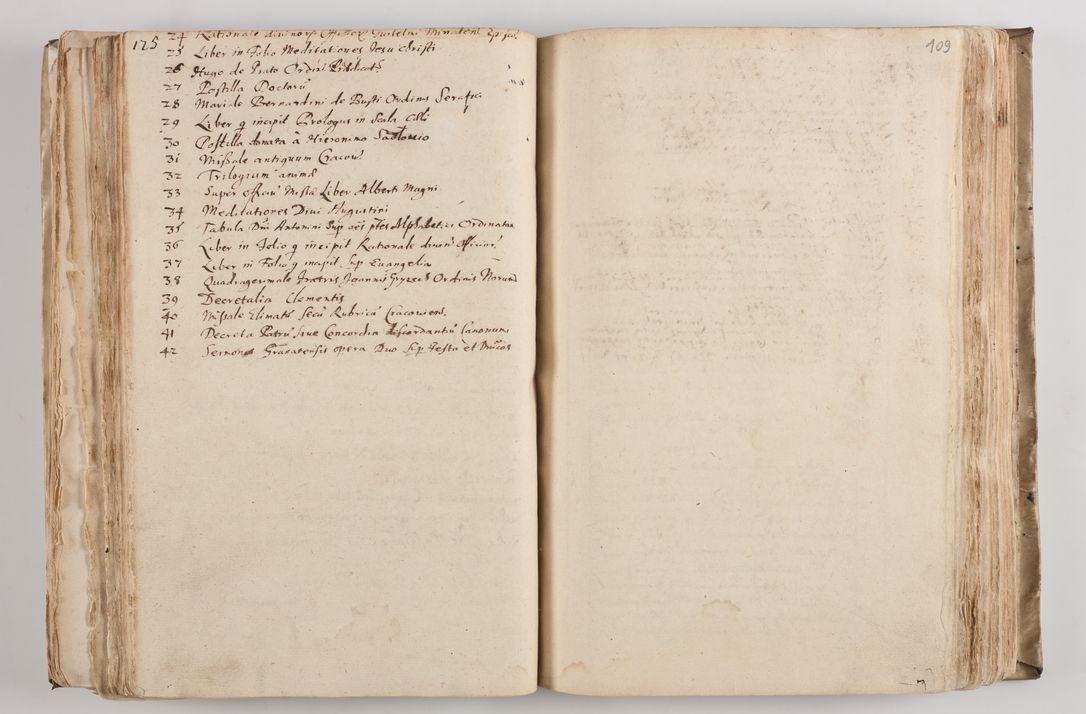 175
24 Rationale divinorũ Officiorũ Guilelmi Minaten Episcõ
25 Liber in Folio Meditationes Jesu Christi
26 Hugo de Prato Ordinis Prædicat
27 Postilla Doctorũ
28 Mariale Bernardini de Busti Ordinis Serafici
29 Liber q incipit Prologus in Scala Cœli
30 Postilla à Hieronimo
31 Missale antiquum Cracov:
32 Trilogium animæ
33 Super officiũ Missæ Liber Alberti Magni
34 Meditationes Divi Augustini
35 Tabula Dni Antonini Sup oẽs ptes Alphabetice Ordinatæ
36 Liber in Folio q incipit Rationale divin Officior
37 Liber in Folio q incipit Sup Evangelia
38 Quadragesmale Fratris Joannis Ordinis Minorum
39 Decretalia Clementis
40 Missale Secũ Rubricã Cracoviens.
41 Decreta Patrũ sive Concordia discordantiũ Canonum
42 Sermones Granatensis opera Duo Sup Festa et
109